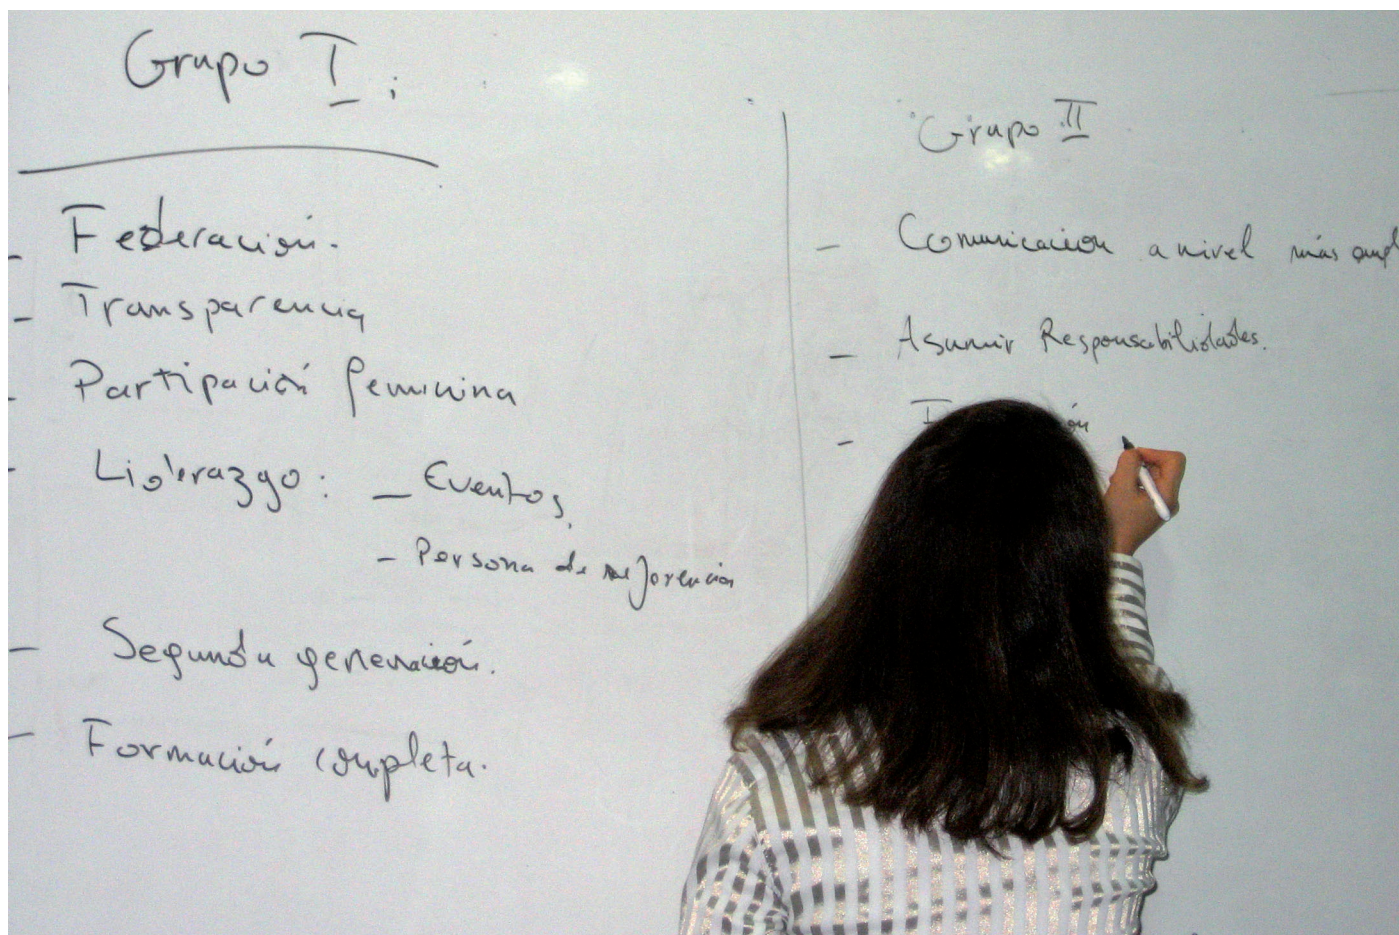 Grupo I:
- Federación.
- Transparencia
- Partipación femenina
- Liderazgo: - Eventos,
- Persona de referencia
- Segunda generación.
- Formación completa.
Grupo II
- Comunicacion a nivel más
- Asumir Responsabilidades.
-